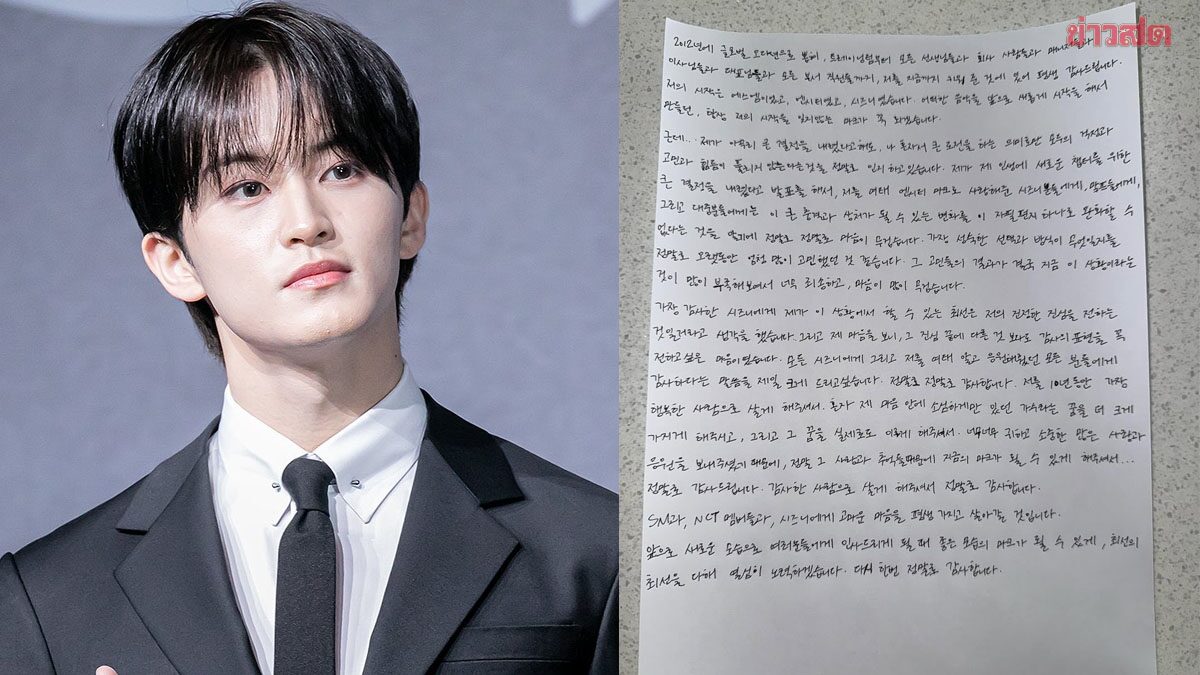 ข่าวสด
2012년에 글로벌 오디션으로 뽑혀, 트레이닝팀부터 모든 선생님들과 회사 사람들과 매니저들과
이사님들과 대표님들과 모든 부서 직원들까지, 저를 지금까지 키워 준 것에 있어 평생 감사드립니다.
저의 시작은 에스엠이었고, 엔시티였고, 시즈니였습니다. 어떠한 음악을 앞으로 새롭게 시작을 해서
만들던, 항상 저의 시작을 잊지않는 마크가 꼭 되겠습니다.
근데... 제가 아무리 큰 결정을 내렸다고해도, 나 혼자서 큰 도전을 하는 의미로만 모두의 걱정과
고민과 힘듦이 풀리지 않는다는것을 정말로 인지 하고있습니다. 제가 제 인생에 새로운 챕터를 위한
큰 결정을 내렸다고 발표를 해서, 저를 여태 엔시티 마크로 사랑해준 시즈니분들에게, 멤프들에게,
그리고 대중분들에게는 이 큰 충격과 상처가 될 수 있는 변화를 이 자필편지 하나로 완화할 수
없다는 것을 알기에 정말로 정말로 마음이 무겁습니다. 가장 성숙한 선택과 방식이 무엇일지를
정말로 오랫동안 엄청 많이 고민했던 것 같습니다. 그 고민들의 결과가 결국 지금 이 상황이라는
것이 많이 부족해보여서 너무 죄송하고, 마음이 많이 무겁습니다.
가장 감사한 시즈니에게 제가 이 상황에서 할 수 있는 최선은 저의 진정한 진심을 전하는
것일거라고 생각을 했습니다. 그리고 제 마음을 보니, 그 진심 끝에 다른 것 보다도 감사의 표현을 꼭
전하고 싶은 마음이었습니다. 모든 시즈니에게 그리고 저를 여태 알고 응원해줬던 모든 분들에게
감사하다는 말씀을 제일 크게 드리고싶습니다. 정말로 정말로 감사합니다. 저를 10년동안 가장
행복한 사람으로 살게 해주셔서. 혼자 제 마음 안에 소심하게만 있던 가수라는 꿈을 더 크게
가지게 해주시고, 그리고 그 꿈을 실제로도 이루게 해주셔서. 너무너무 귀하고 소중한 많은 사랑과
응원을 보내주셨기 때문에, 정말 그 사랑과 추억들때문에 지금의 마크가 될 수 있게 해주셔서...
정말로 감사드립니다. 감사한 사람으로 살게 해주셔서 정말로 감사합니다.
SM과, NCT 멤버들과, 시즈니에게 고마운 마음을 평생 가지고 살아갈 것입니다.
앞으로 새로운 모습으로 여러분들에게 인사드리게 될 때 좋은 모습의 마크가 될 수 있게, 최선의
최선을 다해 열심히 노력하겠습니다. 다시 한번 정말로 감사합니다.